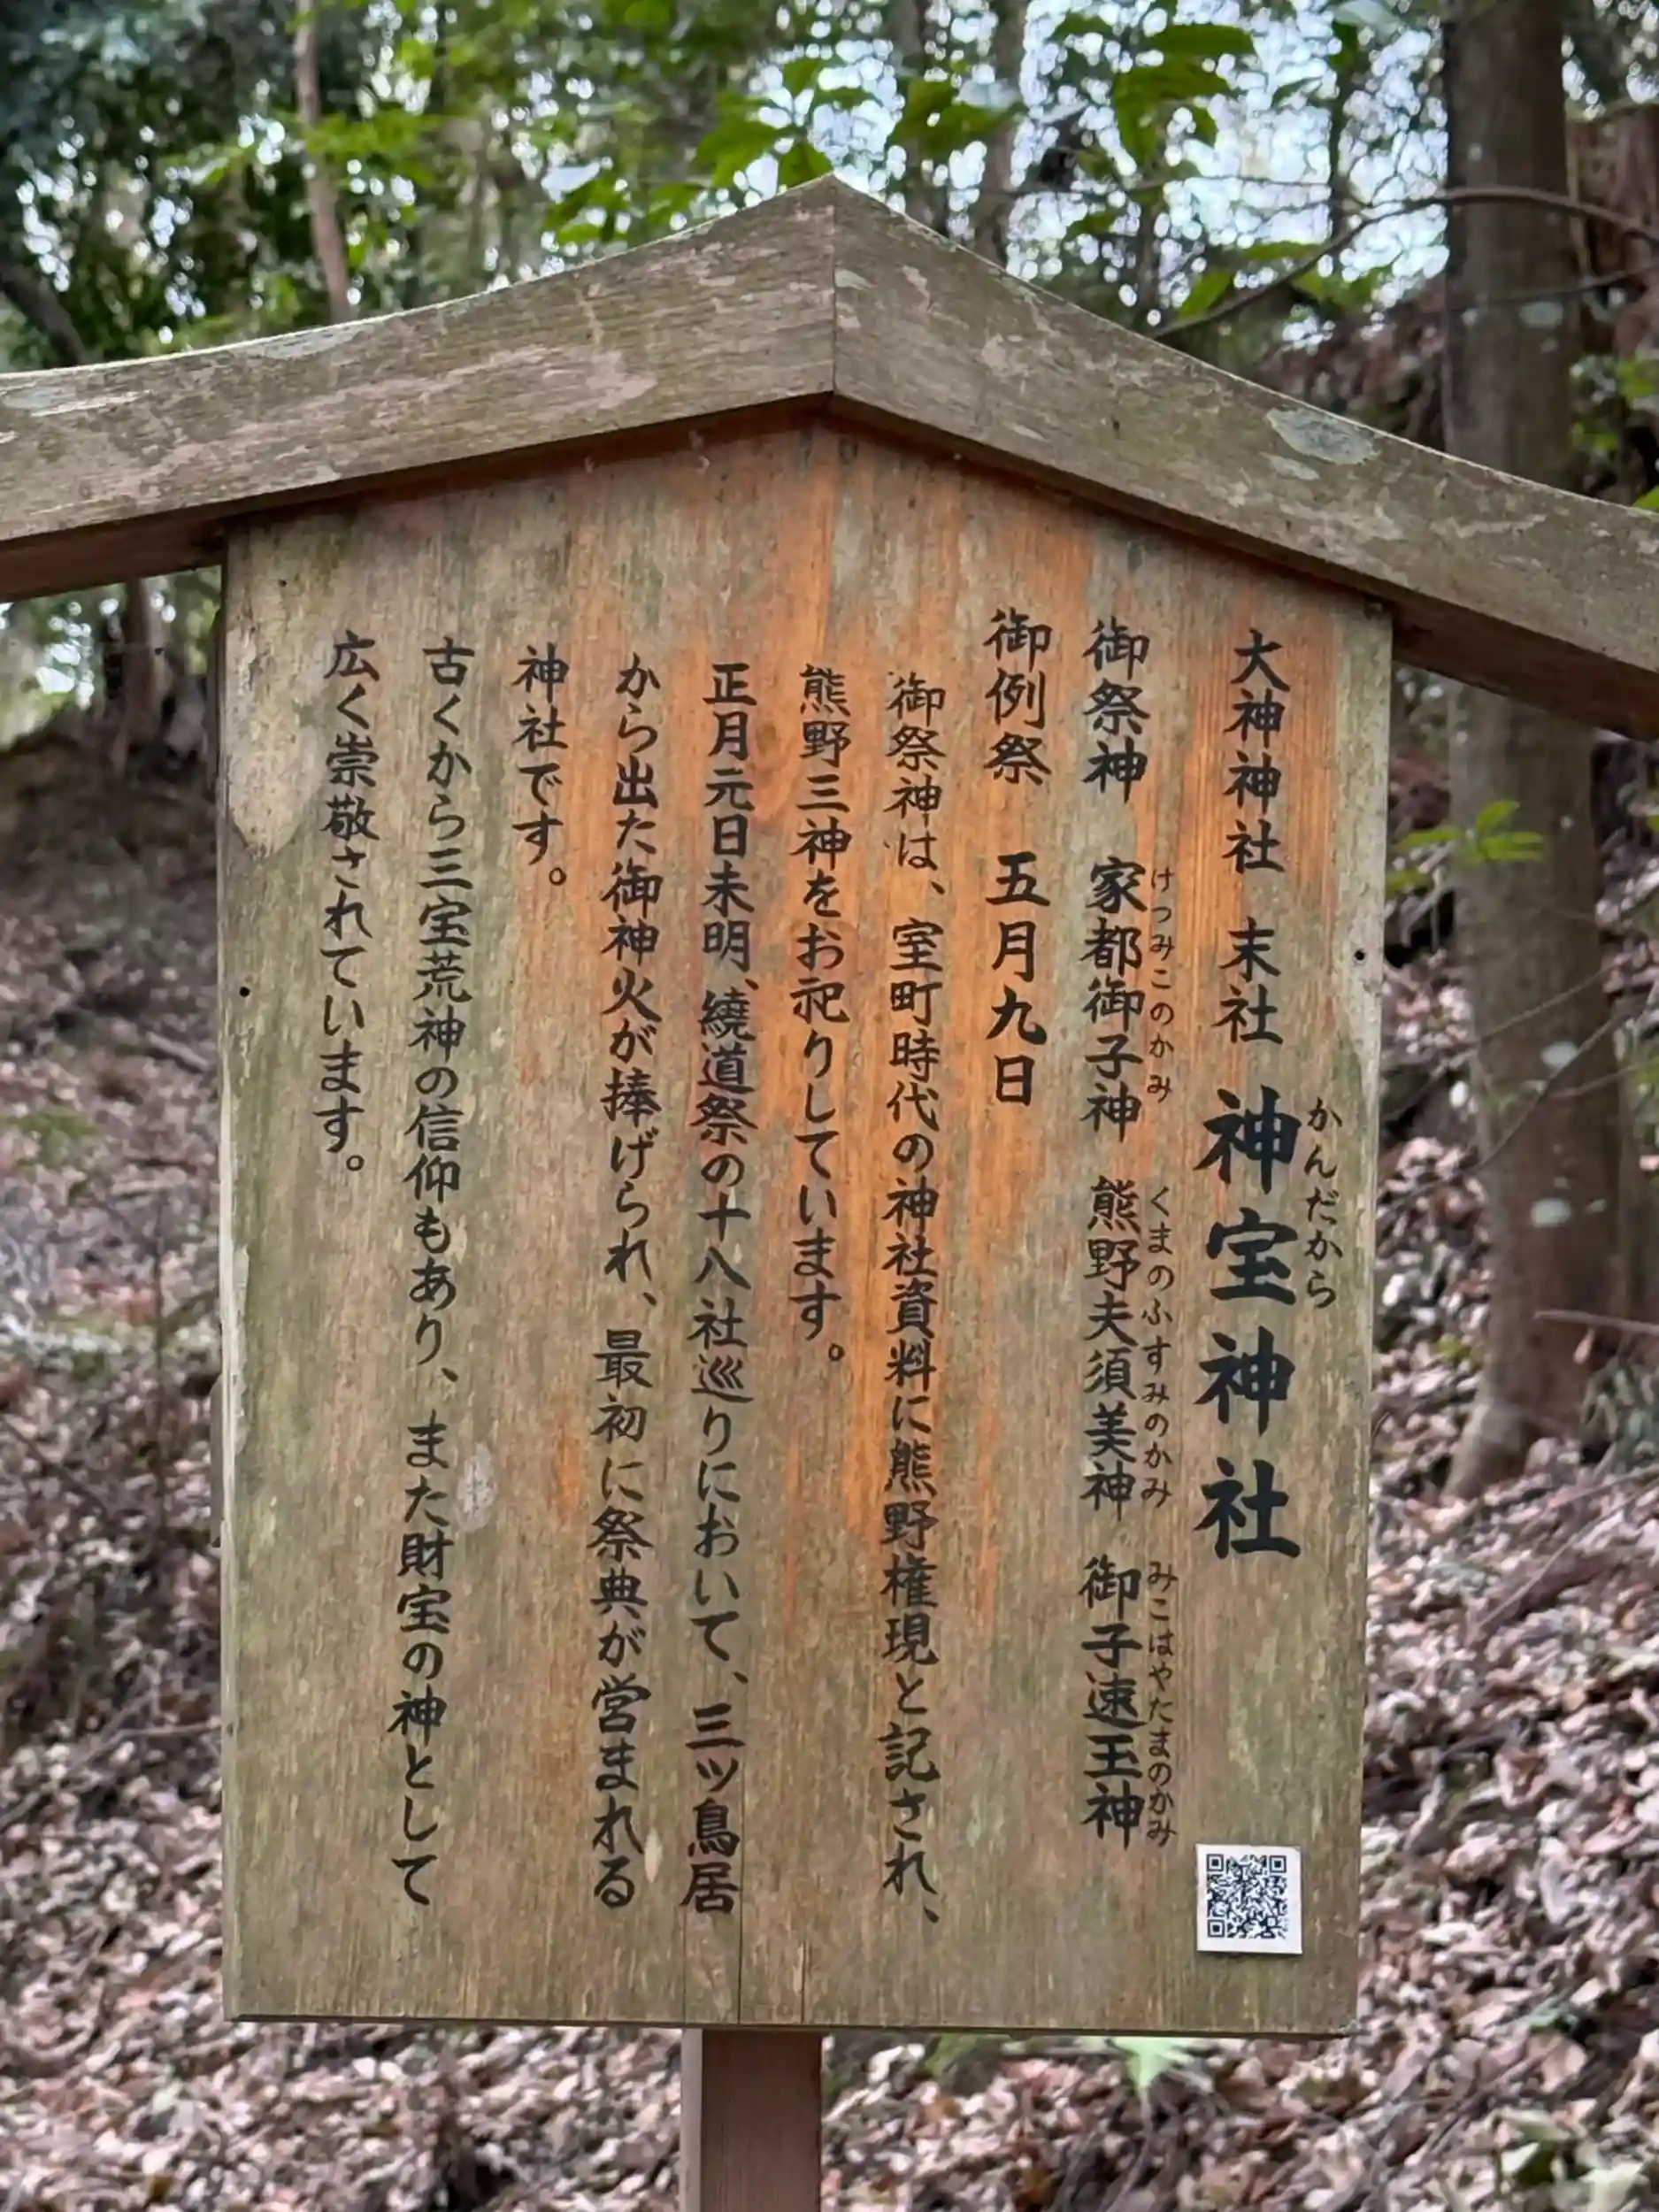 大神神社 末社 神宝神社
かんだから
御祭神 家都御子神 熊野夫須美神 御子速玉神
けつみこのかみ くまのふすみのかみ みこはやたまのかみ
御例祭 五月九日
御祭神は、室町時代の神社資料に熊野権現と記され、
熊野三神をお祀りしています。
正月元日未明、繞道祭の十八社巡りにおいて、三ッ鳥居
から出た御神火が捧げられ、最初に祭典が営まれる
神社です。
古くから三宝荒神の信仰もあり、また財宝の神として
広く崇敬されています。